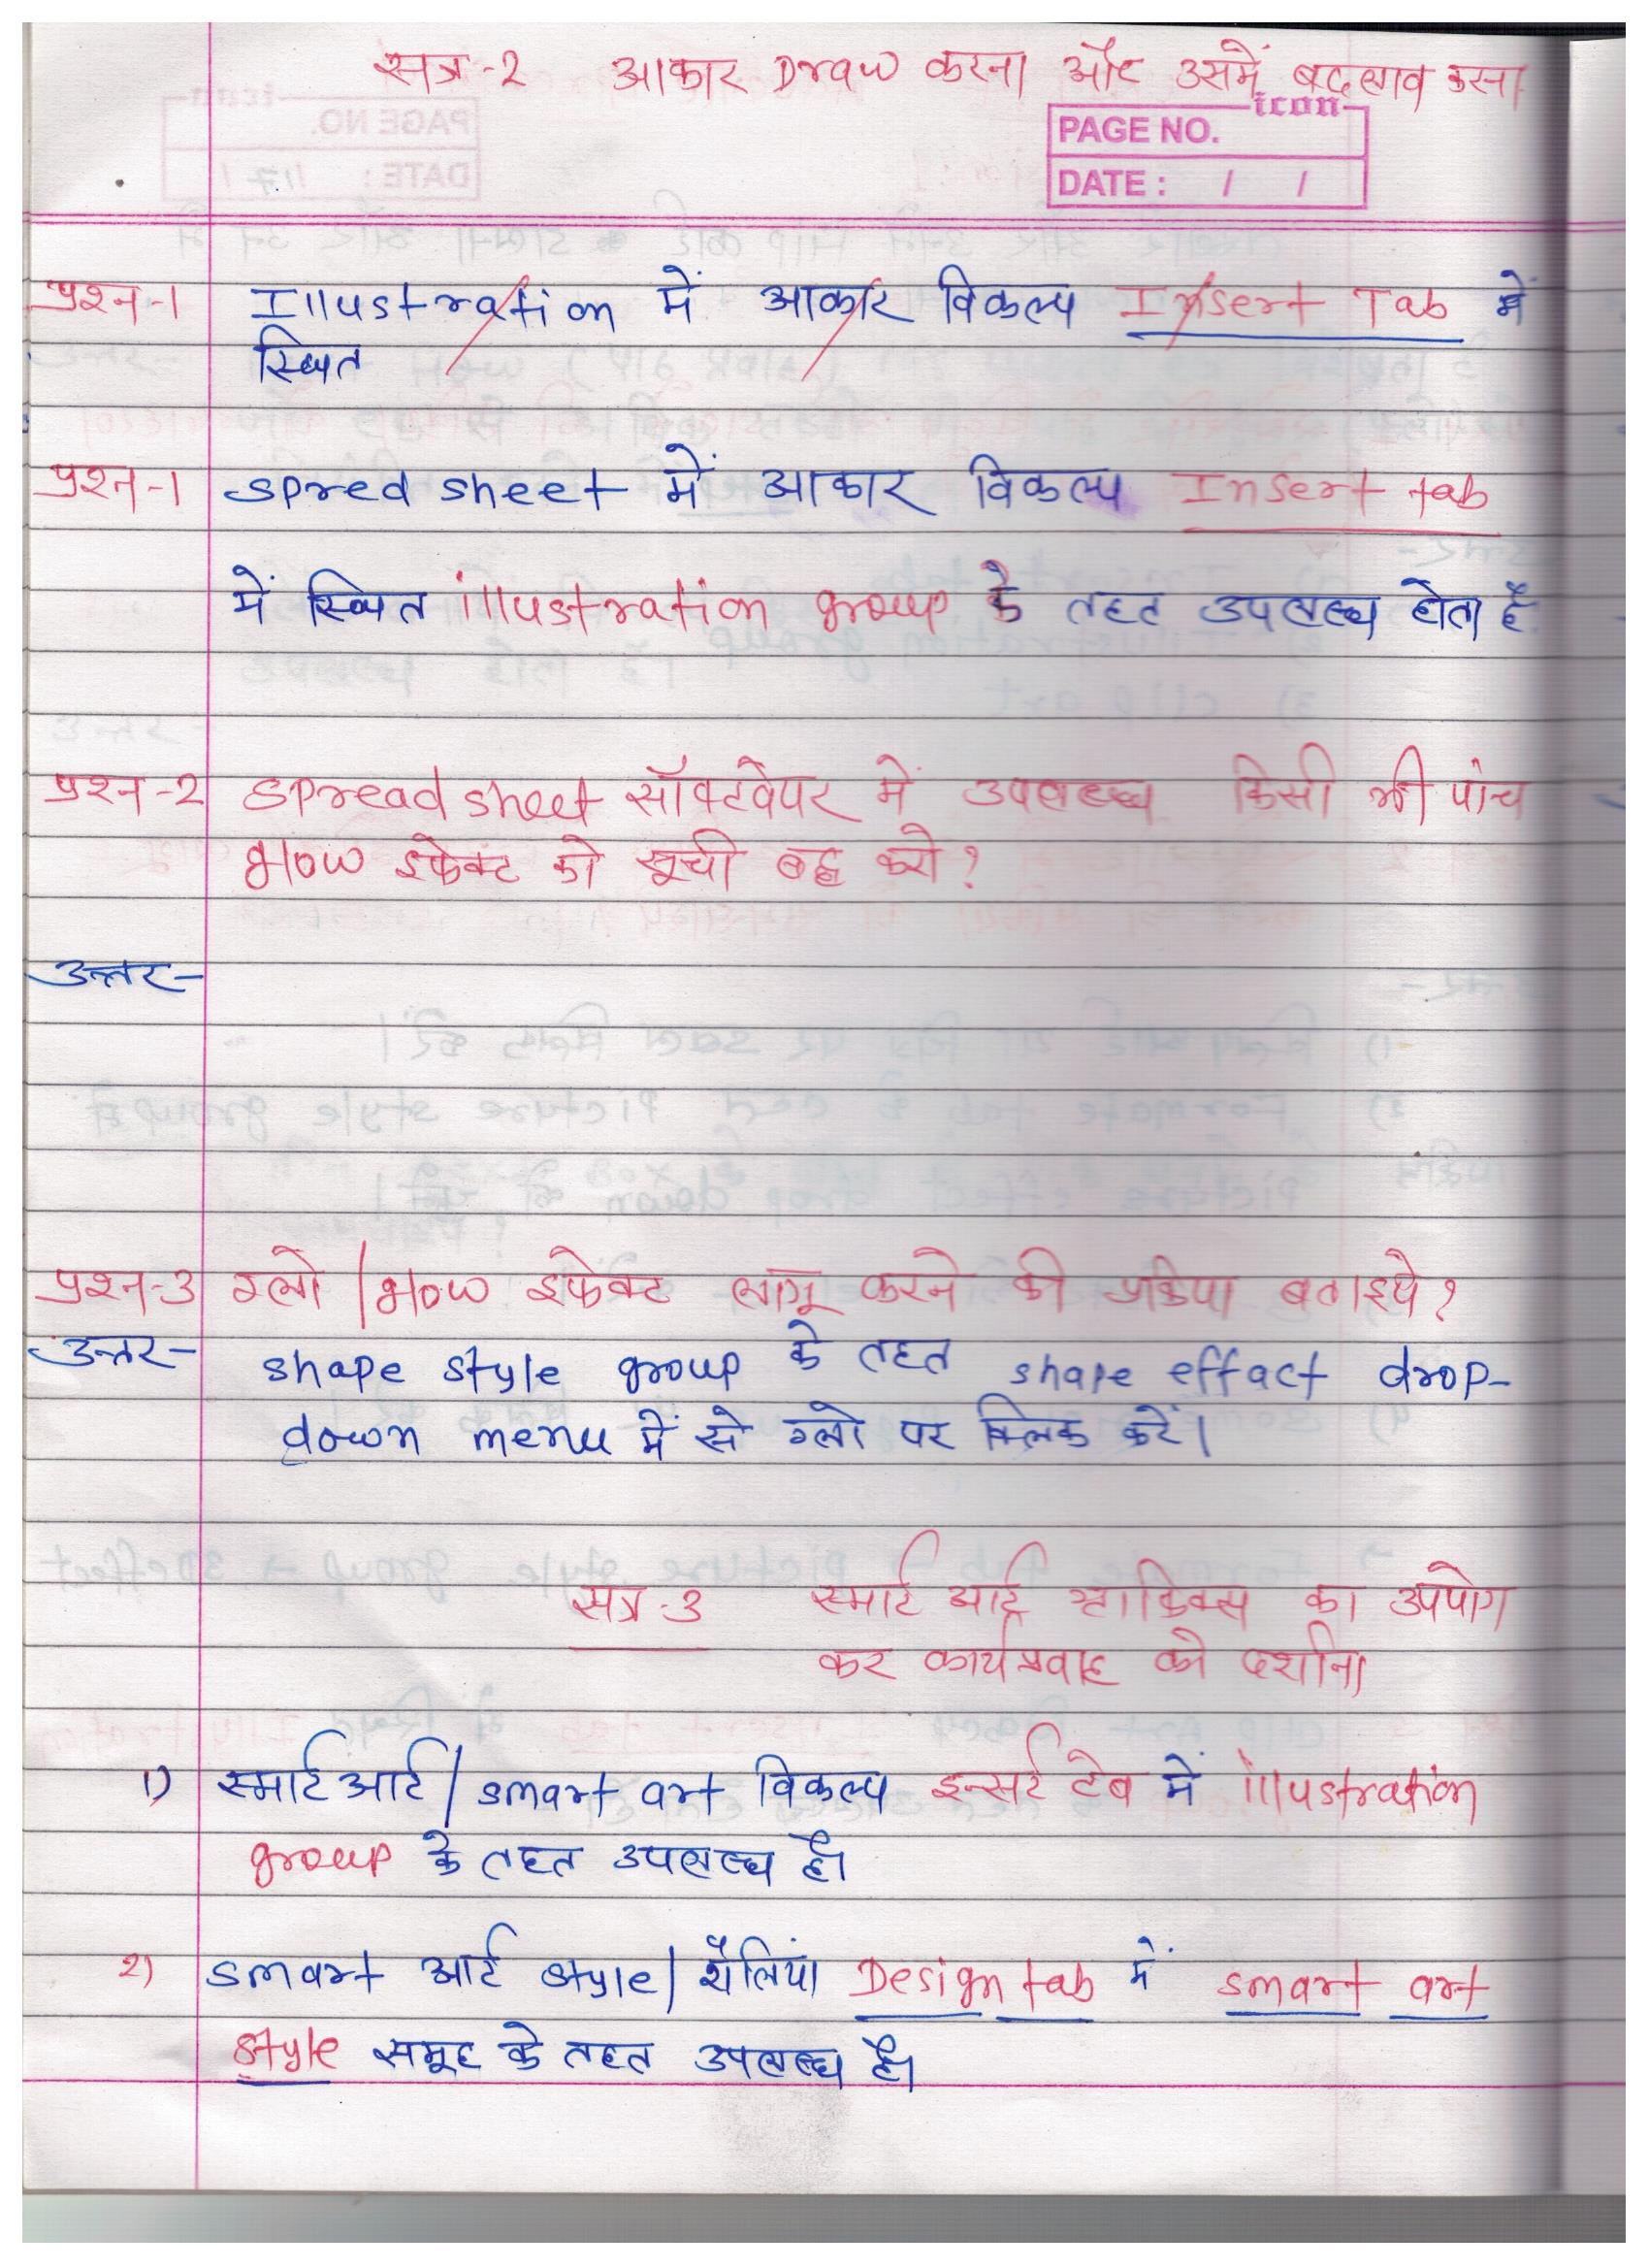 सत्र-2 आकार Draw करना और उसमें बदलाव करना
icon
PAGE NO.
DATE : / /
प्रश्न-1 Illustration में आकार विकल्प Insert Tab में
स्थित
प्रश्न-1 spred sheet में आकार विकल्प Insert tab
में स्थित illustration group के तहत उपलब्ध होता है
प्रश्न-2 spread sheet सॉफ्टवेयर में उपलब्ध किसी भी पांच
glow इफेक्ट को सूची बद्ध करो?
उत्तर-
प्रश्न-3 ग्लो / glow इफेक्ट लागू करने की प्रक्रिया बताइये?
उत्तर- shape style group के तहत shape effact drop-
down menu में से ग्लो पर क्लिक करें।
सत्र-3 स्मार्ट आर्ट ग्राफिक्स का उपयोग
कर कार्यप्रवाह को दर्शाना
1) स्मार्ट आर्ट / smart art विकल्प इन्सर्ट टेब में illustration
group के तहत उपलब्ध है।
2) smart आर्ट style / शैलियां Design tab में smart art
style समूह के तहत उपलब्ध है।